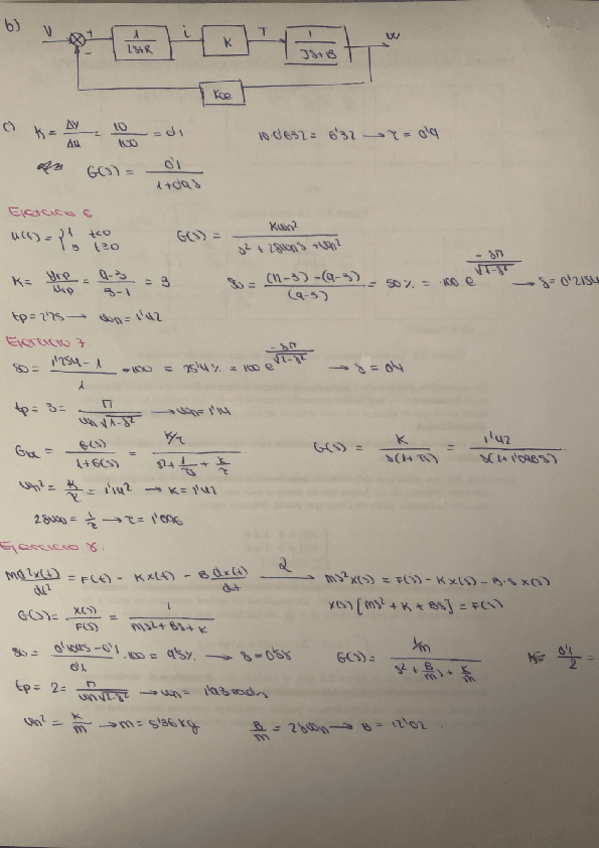 b) V + - 1/(LS+R) i K T 1/(JS+B) w
Kce
c) K = Δy/Δu = 10/100 = 0'1    10·0'632 = 6'32 → τ = 0'9
G(s) = 0'1/(1+0'9s)
Ejercicio 6
u(t) = { 1 t<0
3 t≥0    G(s) = Kωn²/(s² + 2δωns + ωn²)
K = yrp/urp = (9-3)/(3-1) = 3    SO = ((12-3)-(9-3))/(9-3) = 50% = 100 e^(-δπ/√(1-δ²)) → δ = 0'2154
tp = 2'25 → ωn = 1'42
Ejercicio 7
SO = (1'254 - 1)/1 · 100 = 25'4% = 100 e^(-δπ/√(1-δ²)) → δ = 0'4
tp = 3 = π/(ωn√(1-δ²)) → ωn = 1'14
Gbc = G(s)/(1+G(s)) = (K/τ)/(s² + 1/τ s + K/τ)    G(s) = K/(s(1+τs)) = 1'42/(s(1+1'096s))
ωn² = K/τ = 1'14² → K = 1'42
2δωn = 1/τ → τ = 1'096
Ejercicio 8.
M d²x(t)/dt² = F(t) - Kx(t) - B dx(t)/dt → L → Ms²x(s) = F(s) - Kx(s) - B·s x(s)
x(s) [Ms² + K + Bs] = F(s)
G(s) = x(s)/F(s) = 1/(Ms² + Bs + K)
SO = (0'1095 - 0'1)/0'1 · 100 = 9'5% → δ = 0'58    G(s) = (1/m)/(s² + B/m s + K/m)    K = 0'1/2 =
tp = 2 = π/(ωn√(1-δ²)) → ωn = 1'93 rad/s
ωn² = K/m → m = 5'36 kg    B/m = 2δωn → B = 12'02.